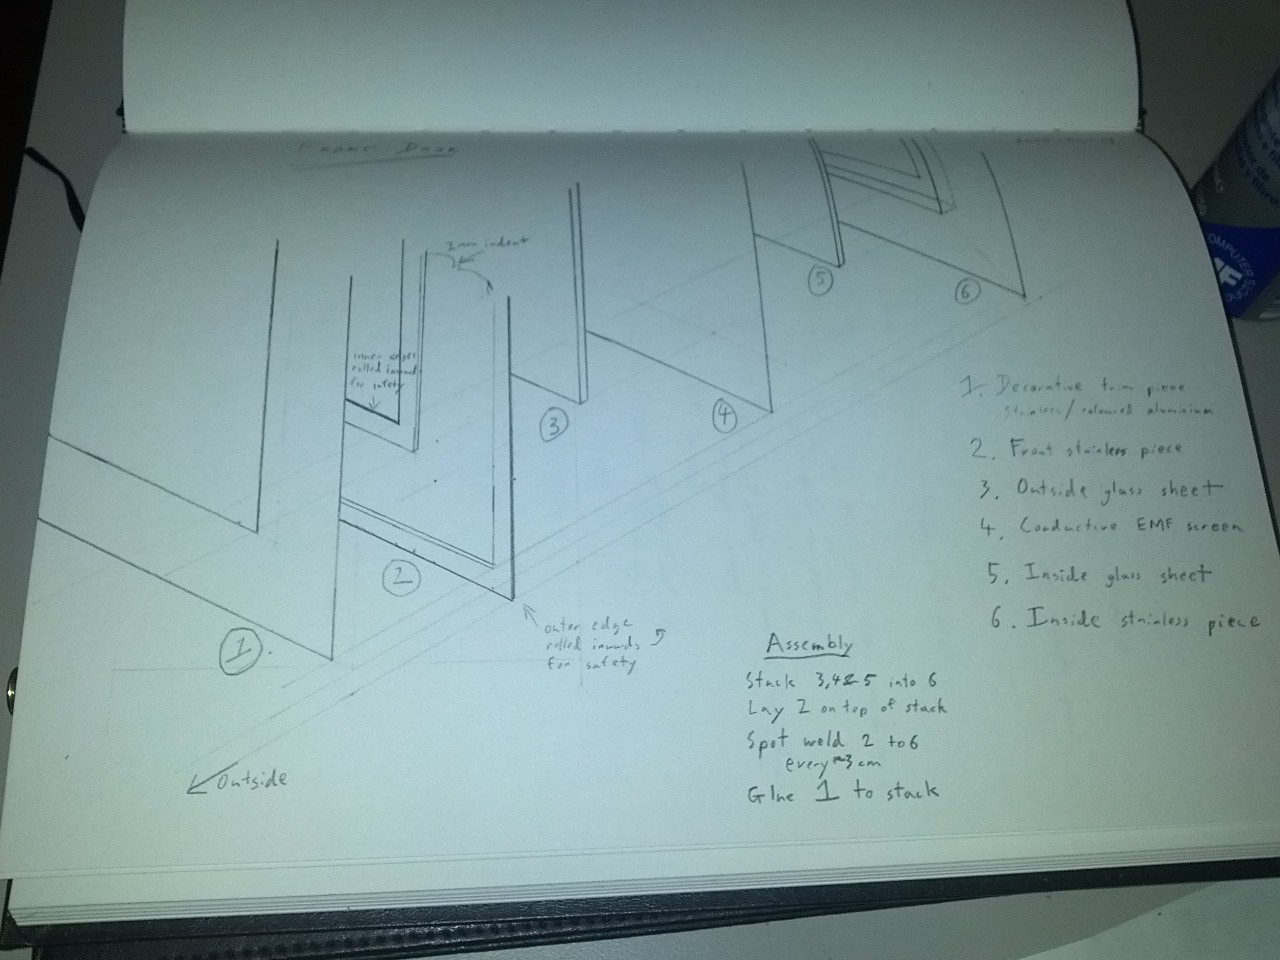 Door
2mm indent
inner edges
rolled inwards
for safety
1
2
3
4
5
6
outer edge
rolled inwards
for safety
Outside
1. Decorative trim piece
stainless/coloured aluminium
2. Front stainless piece
3. Outside glass sheet
4. Conductive EMF screen
5. Inside glass sheet
6. Inside stainless piece
Assembly
Stack 3,4&5 into 6
Lay 2 on top of stack
Spot weld 2 to 6
every ~3 cm
Glue 1 to stack
COMPUTER